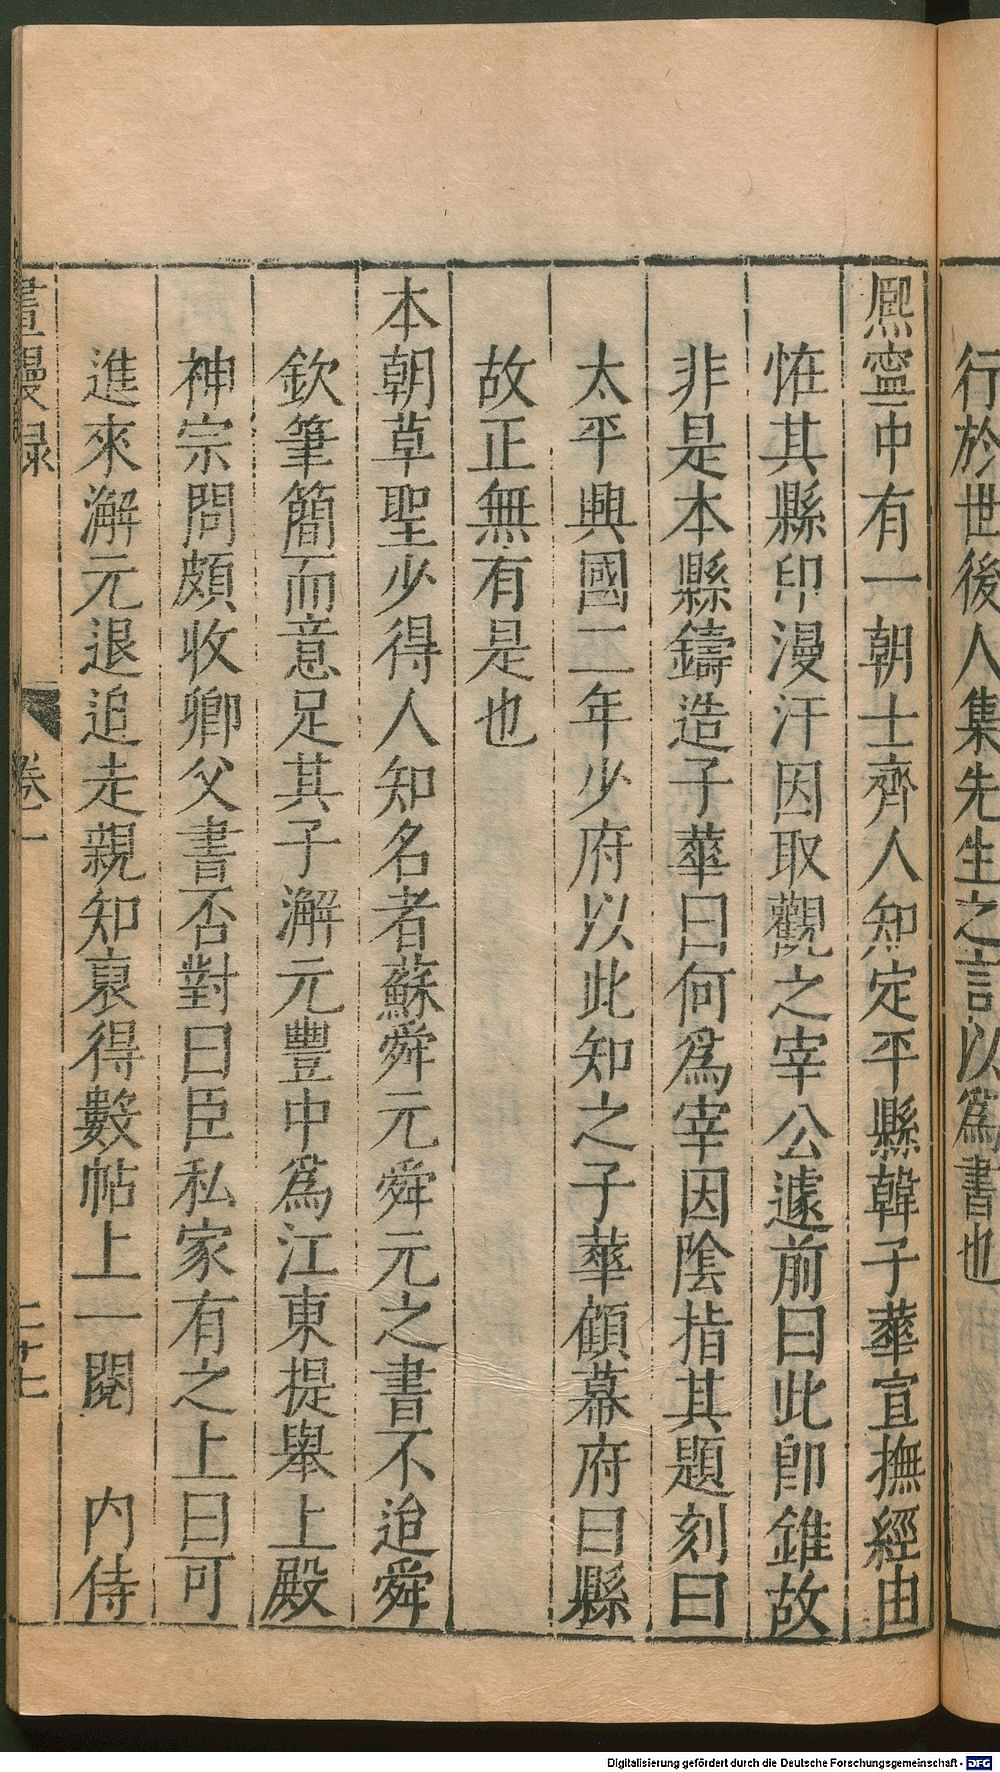 行於世後人集先生之言以爲書也
熈寧中有一朝士齊人知定平縣韓子華宣撫經由
恠其縣印漫汗因取觀之宰公遽前曰此卽錐故
非是本縣鑄造子華曰何爲宰因陰指其題刻曰
太平興國二年少府以此知之子華顧幕府曰縣
故正無有是也
本朝草聖少得人知名者蘇舜元舜元之書不迨舜
欽筆簡而意足其子澥元豐中爲江東提舉上殿
神宗問頗收卿父書否對曰臣私家有之上曰可
進來澥元退追走親知裒得數帖上一閱　内侍
畫墁录　卷一　二十七
Digitalisierung gefördert durch die Deutsche Forschungsgemeinschaft - DFG